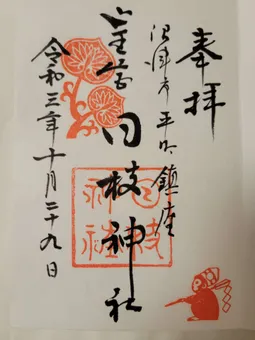 奉拝
沼津市平町鎮座
山王宮 日枝神社
令和三年十月二十九日
日枝
神社